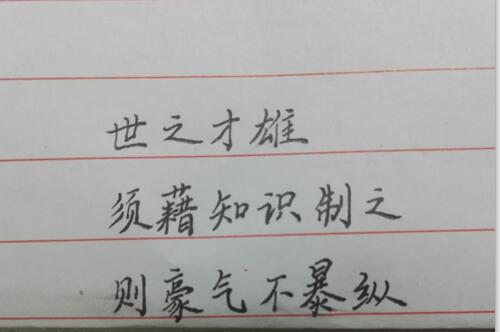 世之才雄
须藉知识制之
则豪气不暴纵